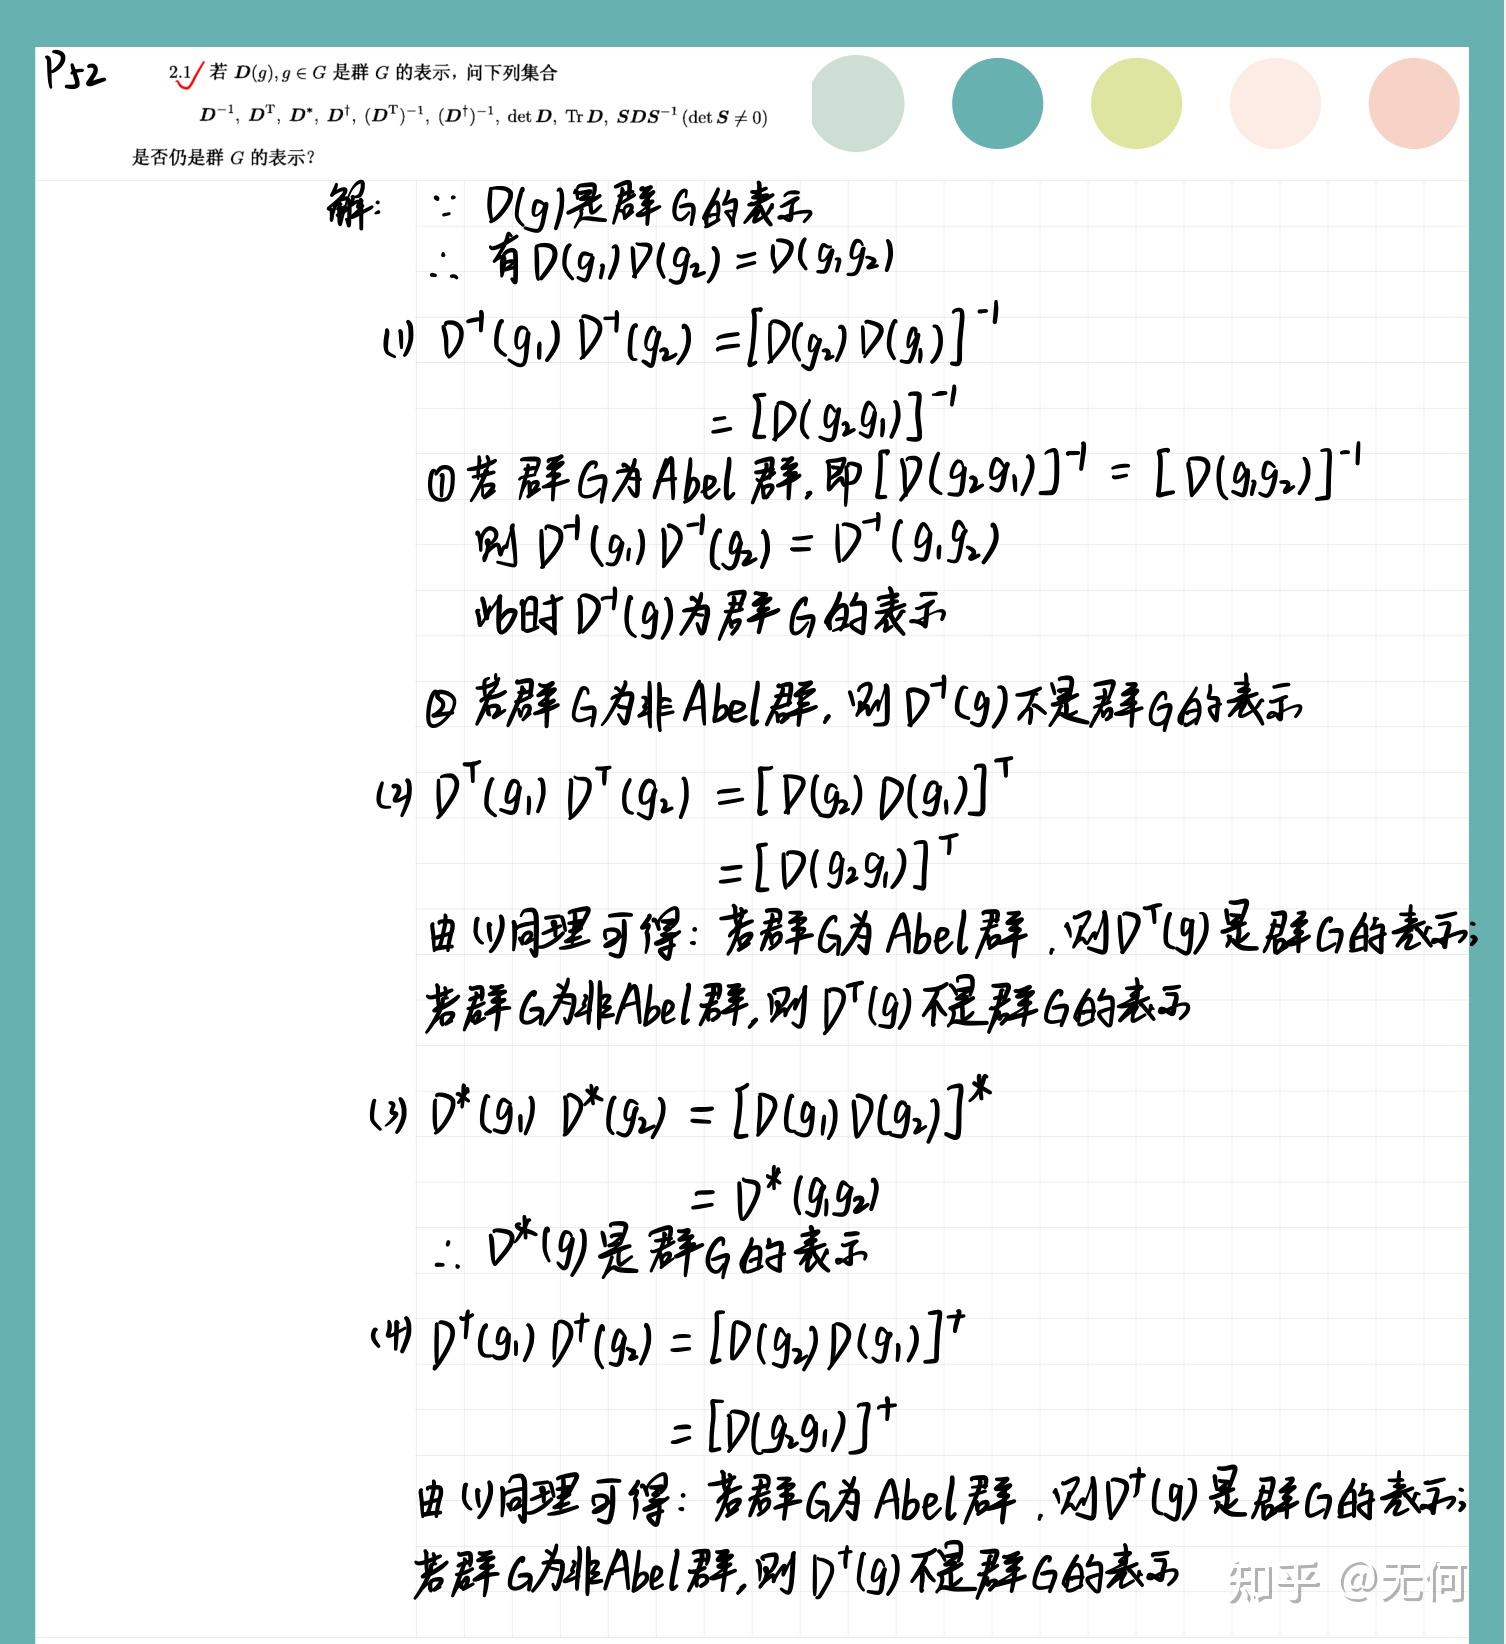 P52
2.1 若 D(g), g ∈ G 是群 G 的表示，问下列集合
D⁻¹, Dᵀ, D*, D†, (Dᵀ)⁻¹, (D†)⁻¹, det D, Tr D, SDS⁻¹ (det S ≠ 0)
是否仍是群 G 的表示？
解: ∵ D(g)是群G的表示
∴ 有D(g₁)D(g₂) = D(g₁g₂)
(1) D⁻¹(g₁) D⁻¹(g₂) = [D(g₂) D(g₁)]⁻¹
= [D(g₂g₁)]⁻¹
① 若群G为Abel群, 即[D(g₂g₁)]⁻¹ = [D(g₁g₂)]⁻¹
则 D⁻¹(g₁) D⁻¹(g₂) = D⁻¹(g₁g₂)
此时D⁻¹(g)为群G的表示
② 若群G为非Abel群, 则D⁻¹(g)不是群G的表示
(2) Dᵀ(g₁) Dᵀ(g₂) = [D(g₂) D(g₁)]ᵀ
= [D(g₂g₁)]ᵀ
由(1)同理可得: 若群G为Abel群, 则Dᵀ(g)是群G的表示;
若群G为非Abel群, 则Dᵀ(g)不是群G的表示
(3) D*(g₁) D*(g₂) = [D(g₁) D(g₂)]*
= D*(g₁g₂)
∴ D*(g)是群G的表示
(4) D†(g₁) D†(g₂) = [D(g₂) D(g₁)]†
= [D(g₂g₁)]†
由(1)同理可得: 若群G为Abel群, 则D†(g)是群G的表示;
若群G为非Abel群, 则D†(g)不是群G的表示
知乎 @无何